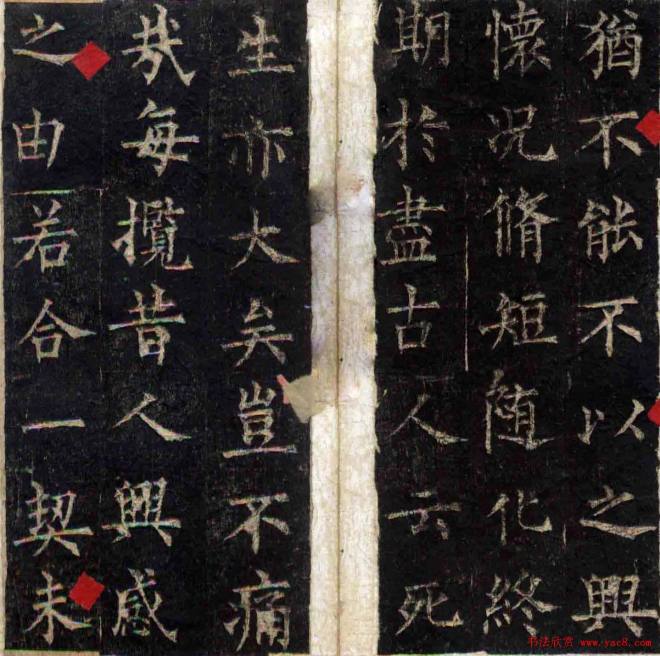 猶不能不以之興
懷况脩短随化終
期於盡古人云死
生亦大矣豈不痛
哉每攬昔人興感
之由若合一契未
书法欣赏 www.yac8.com